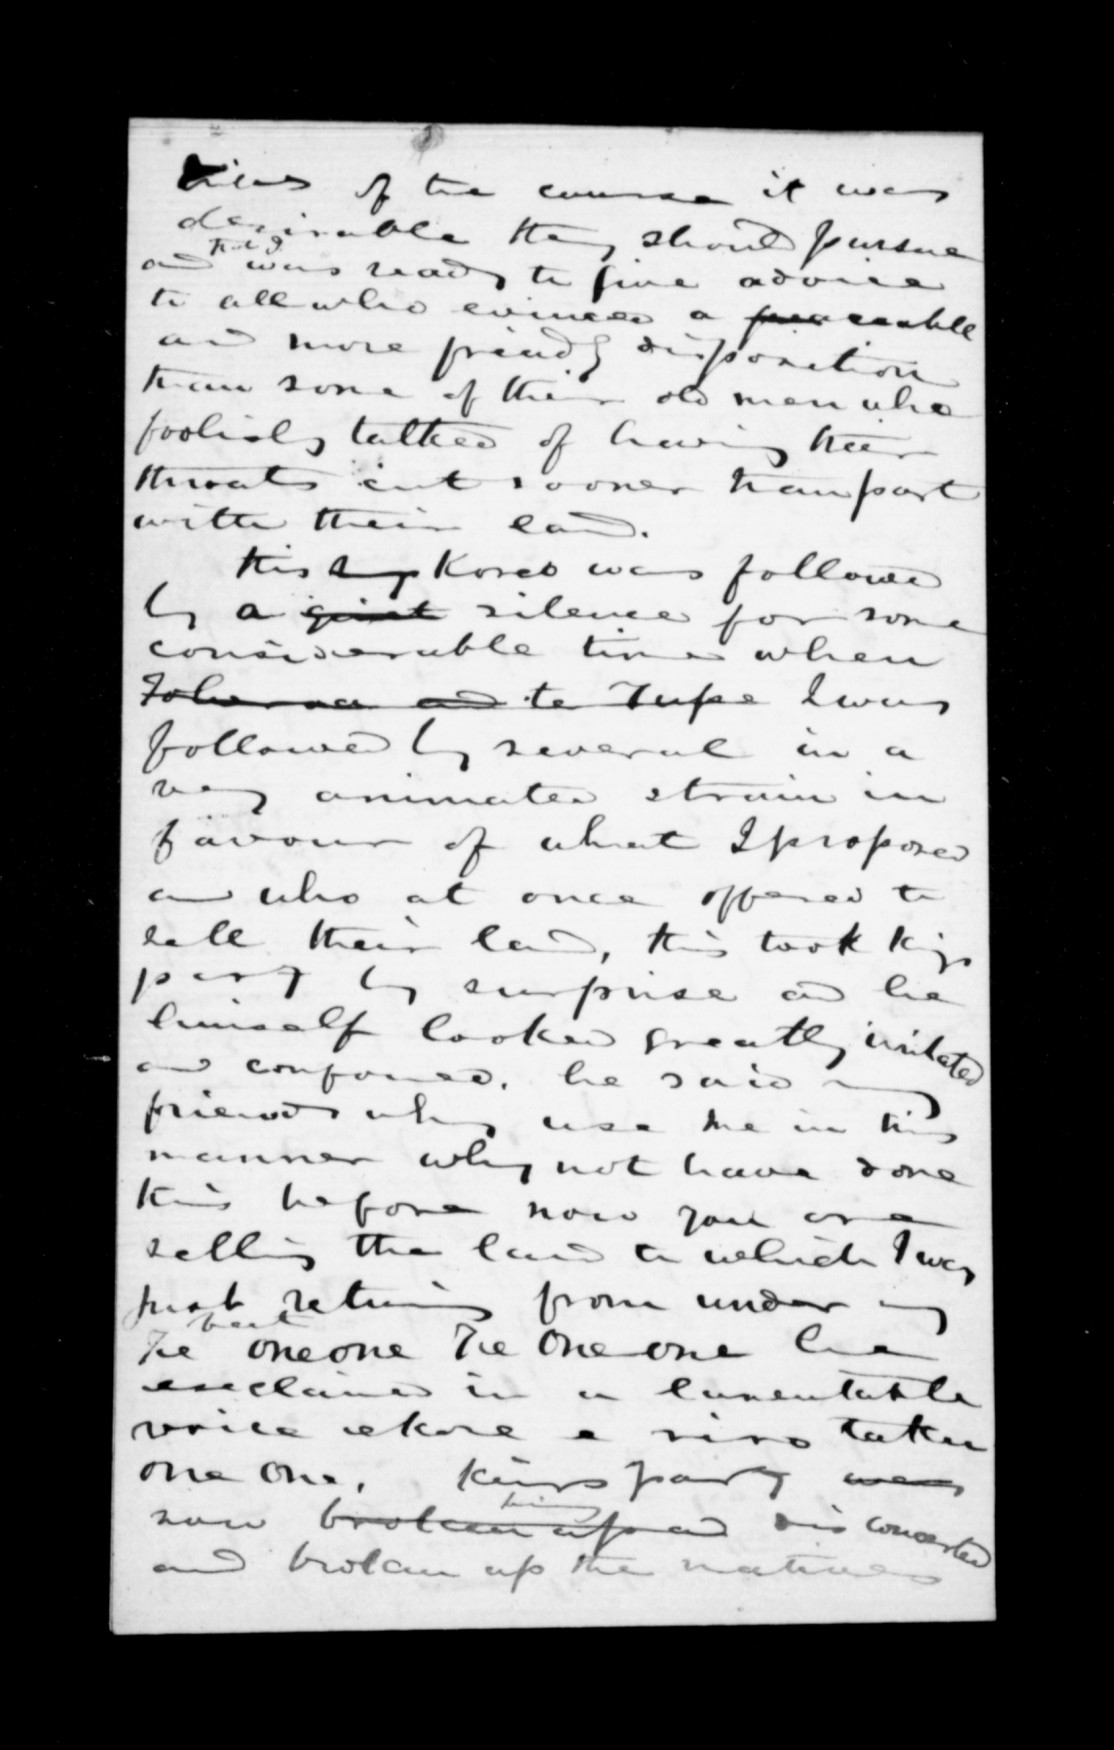 tribes of the course it was
desirable they should pursue
and that I was ready to give advice
to all who evinced a peaceable
and more friendly disposition
than some of their old men who
foolishly talked of having their
throats cut sooner than part
with their land.
this Korero was followed
by a quiet silence for some
considerable time when
and te Tupe I was
followed by several in a
very animated strain in
favour of what I proposed
and who at once offered to
sell their land, this took Kings
party by surprise and he
himself looked greatly irritated
and confused. he said my
friends why use me in this
manner why not have done
this before now you are
selling the land to which I was
just retiring from under my
feet
Te oneone Te Oneone he
exclaimed in a lamentable
voice ekore e riro taku
one one, Kings party was
now being broken up and disconcerted
and broken up the natives